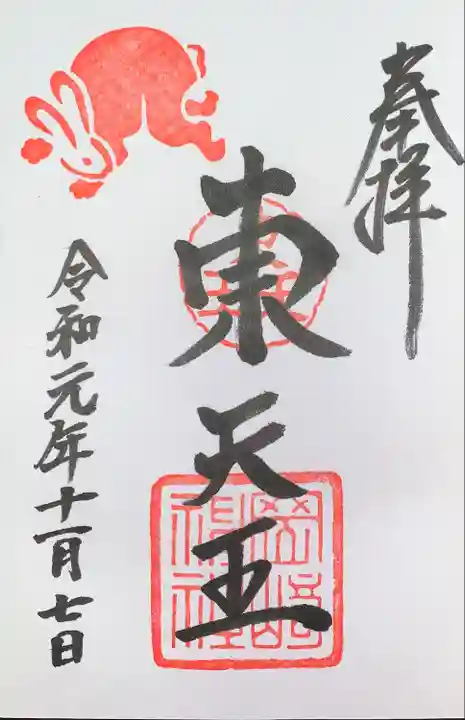 奉拝
東天王
岡﨑神社
令和元年十一月七日